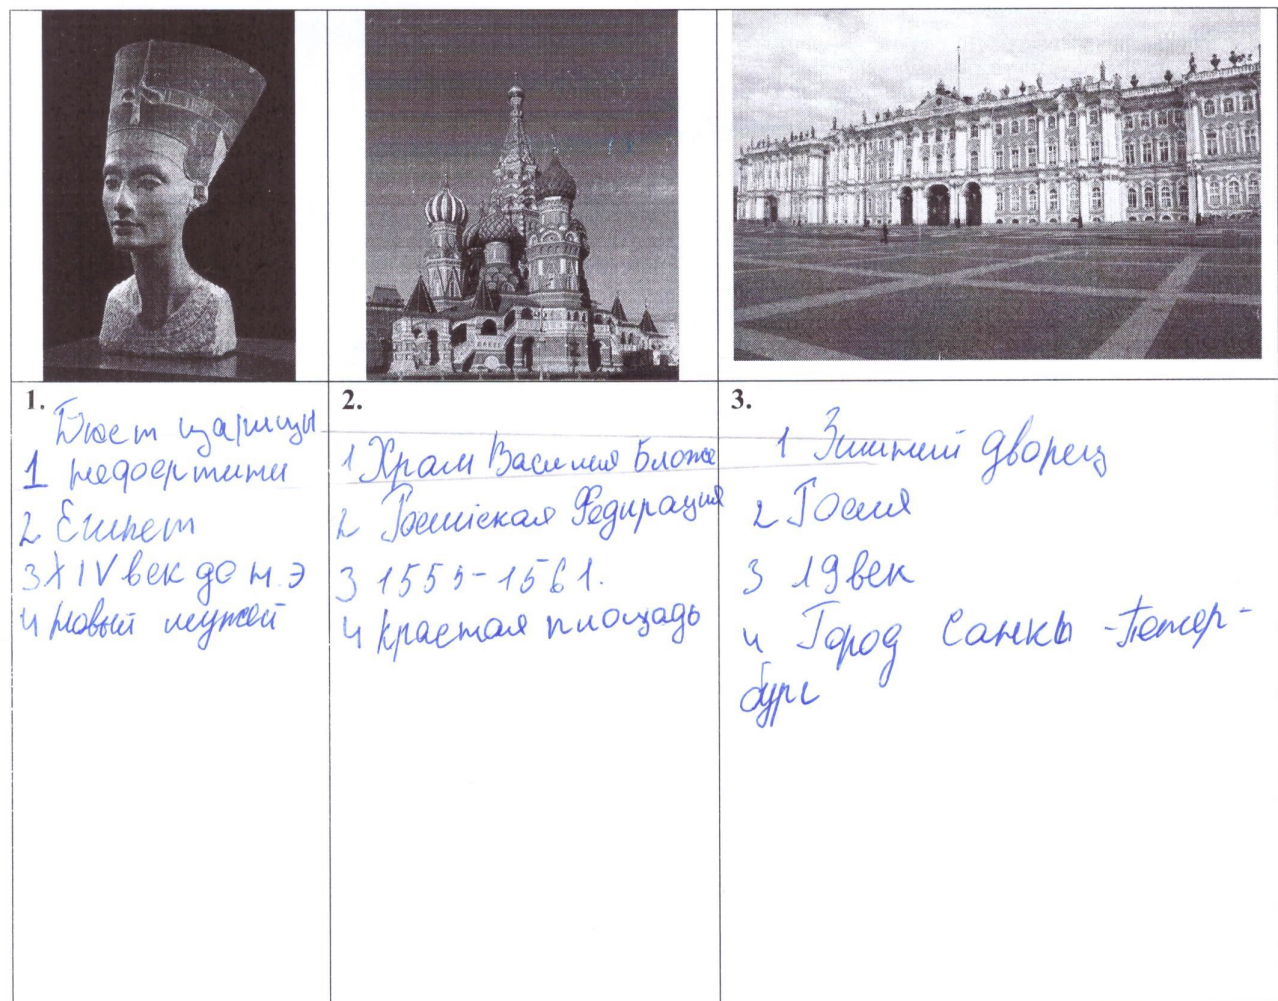 1.
Бюст царицы
1 недоертити
2 Египет
3 XIV век до н.э
4 новый музей
2.
1 Храм Василия Блаже
2 Росийская Федирация
3 1555-1561.
4 красная площадь
3.
1 Зимний дворец
2 Росия
3 19 век
4 Город Санкы-Петер-
бург